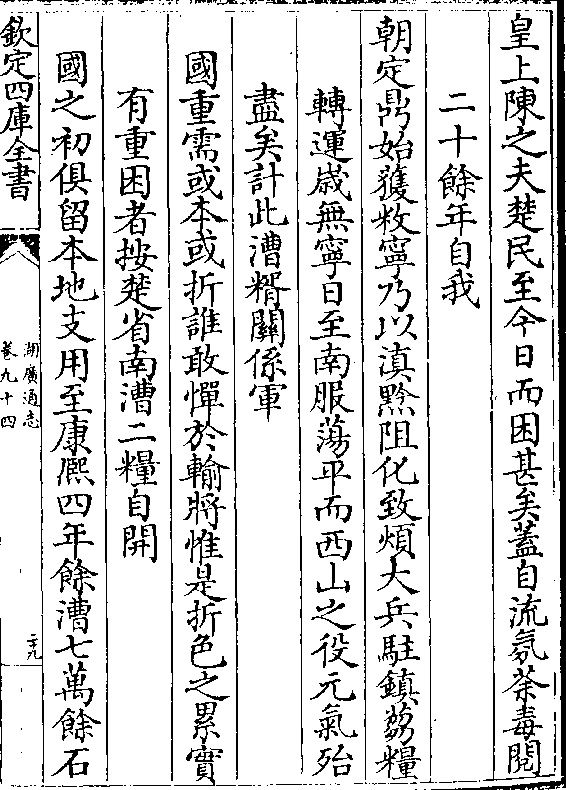 皇上陳之夫楚民至今日而困甚矣蓋自流氛荼毒閱
二十餘年自我
朝定鼎始獲敉寧乃以滇黔阻化致煩大兵駐鎮芻糧
轉運歲無寧日至南服蕩平而西山之役元氣殆
盡矣計此漕糈關係軍
國重需或本或折誰敢憚於輸將惟是折色之累實
有重困者按楚省南漕二糧自開
國之初俱留本地支用至康熈四年餘漕七萬餘石
欽定四庫全書
湖廣通志
卷九十四
二九